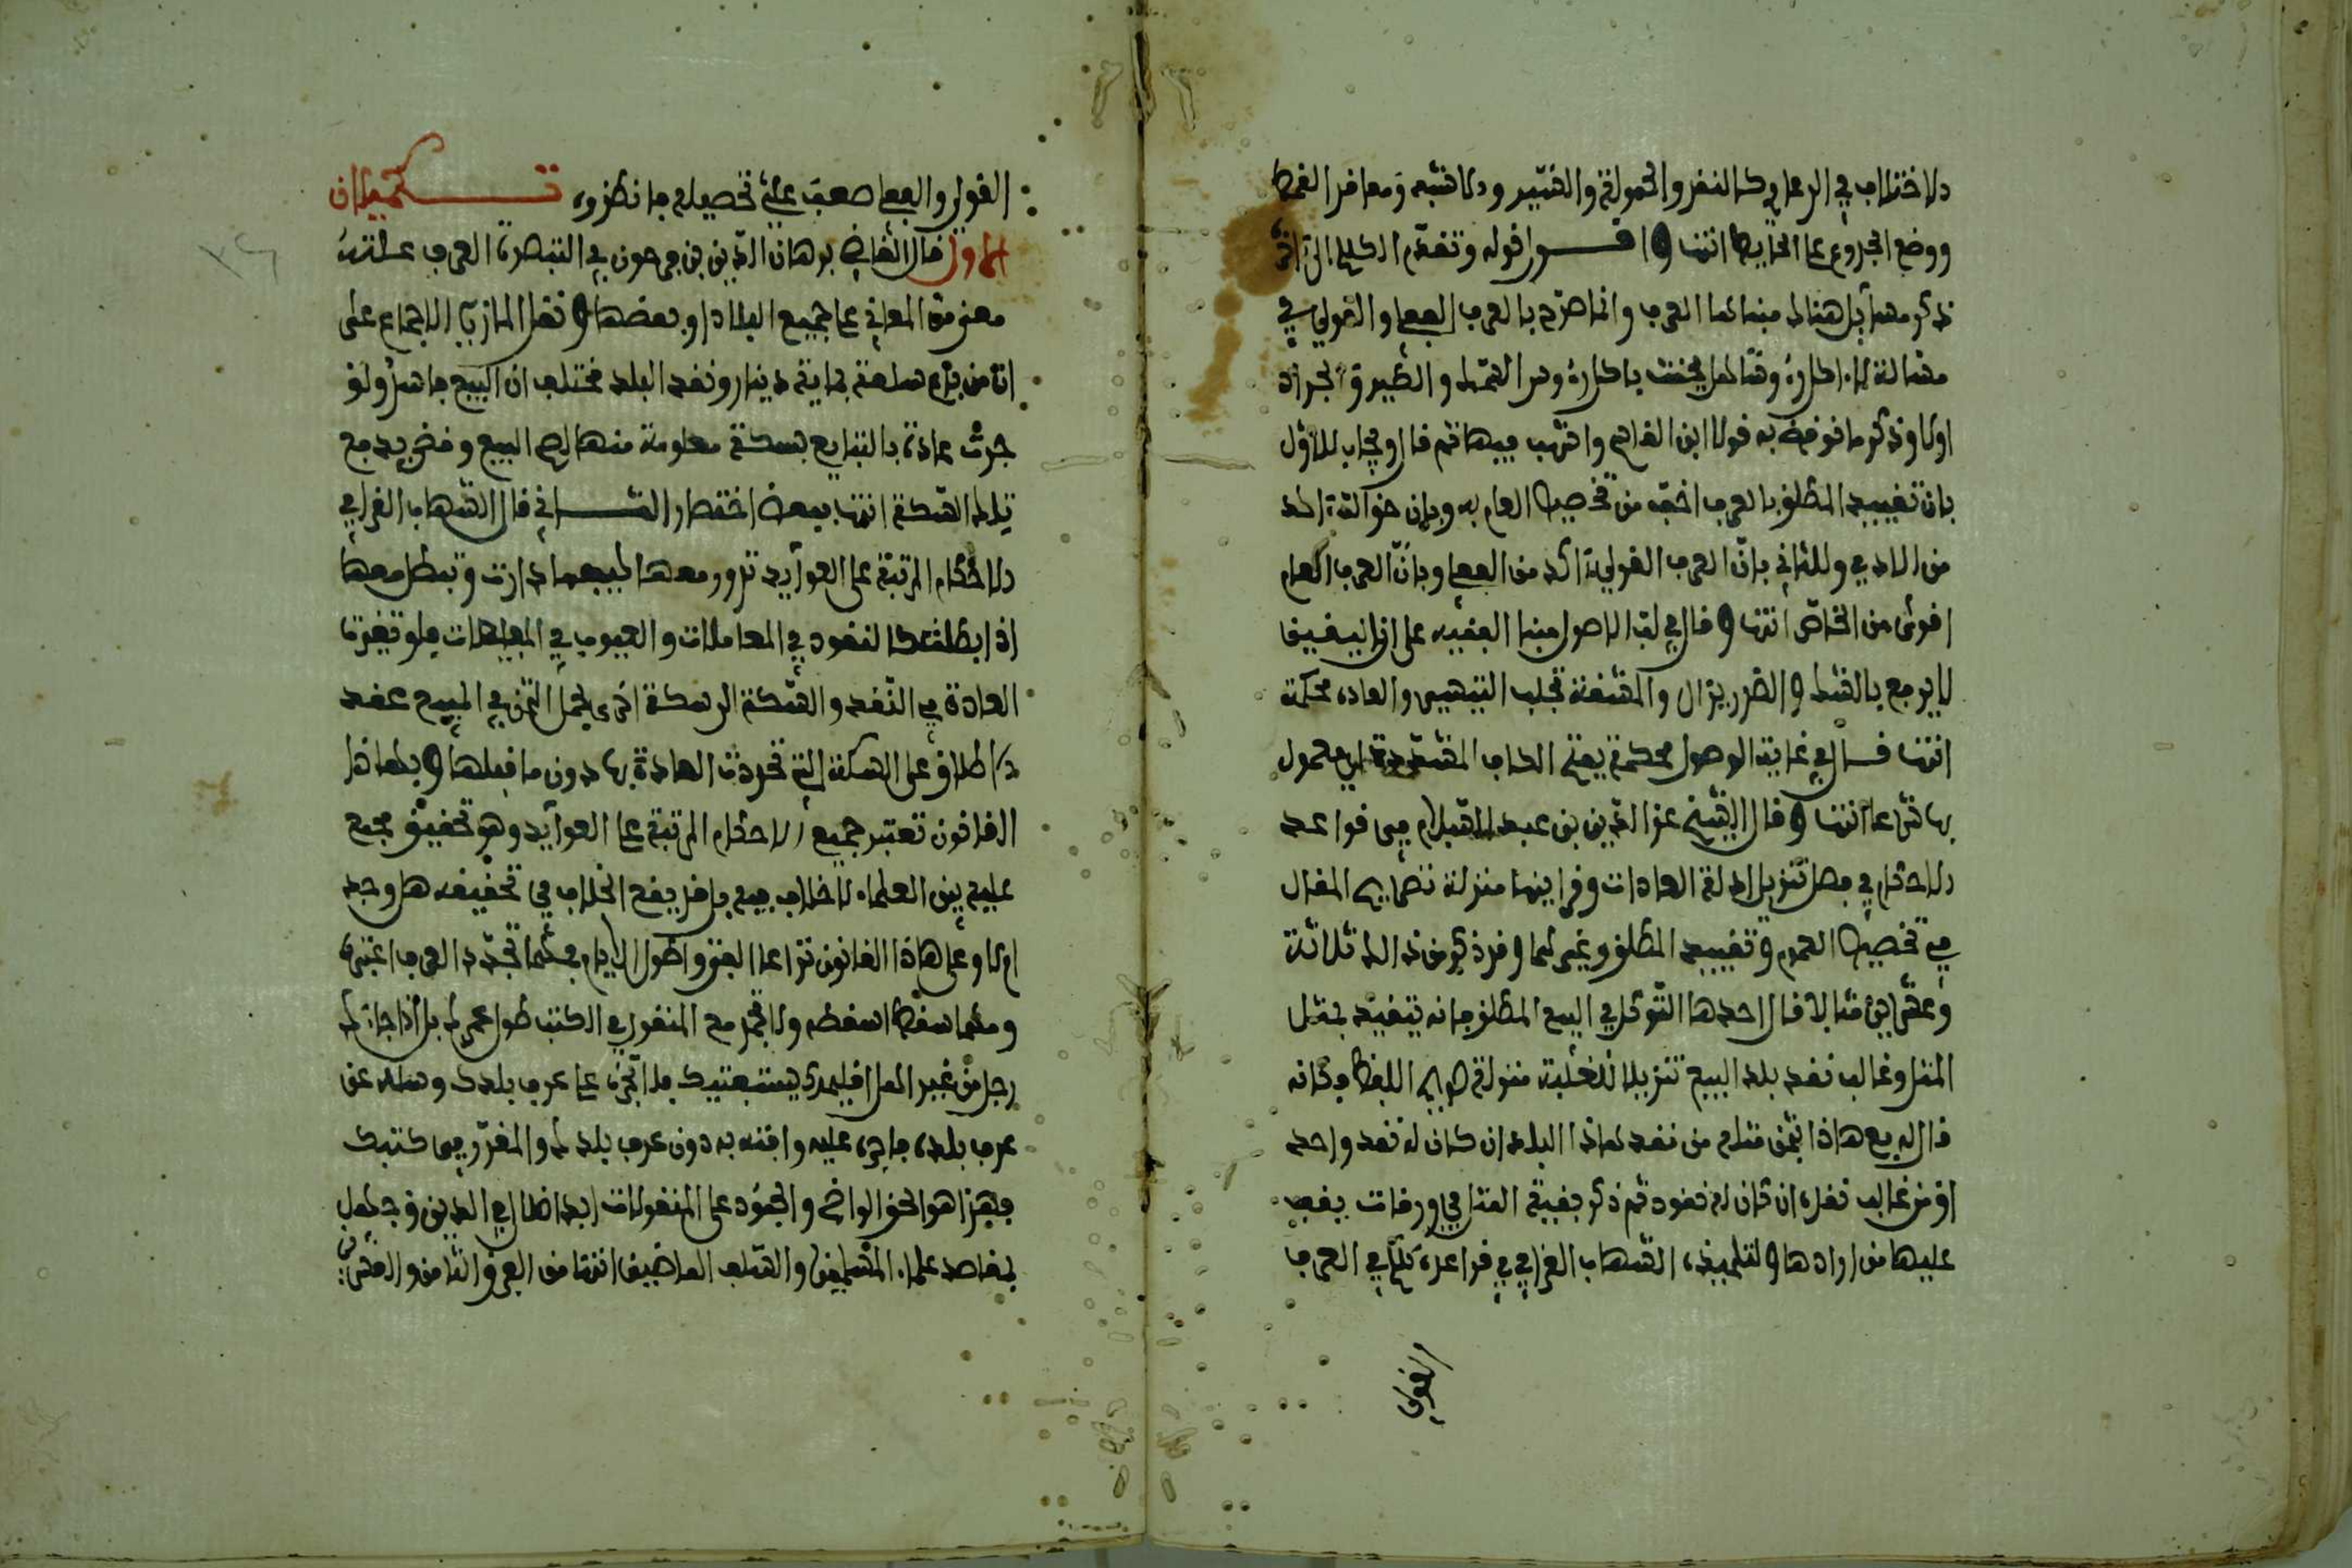 الاختلاف في الدعاوي كالنقد والحمولة والسير والأبنية ومعاقد القمط
ووضع الجذوع على الحائط انتهى اقول قوله وتقدم الكلام الى آخره
ذكر مسائل هنالك مبناها العرف وانما صرح بالعرف الفعلي والقولي في
مسألة لا اكل وهل يحنث باكل لحم السمك والطير والجراد
اولا وذكر ما نوقض به قولا ابن القاسم واشهب فيها ثم قال ويجاب للاول
بان تقييد المطلق بالعرف اخف من تخصيص العام به وبان خواله اكد
من الادعي وللثاني بان العرف القولي اكد من الفعلي وبان العرف العام
اقوى من الخاص انتهى وقال في لب الاصول مبنى الفقيه على ان اليقين
لا يرفع بالشك والضرر يزال والمشقة تجلب التيسير والعادة محكمة
انتهى قال في غاية الوصول محكمة بفتح الكاف المشددة اي معمول
بها شرعا انتهى وقال الشيخ عز الدين بن عبد السلام في قواعد
الاحكام فصل في تنزيل دلالة العادات وقرائنها منزلة صريح المقال
في تخصيص العموم وتقييد المطلق وغيرهما وقد ذكر من ذلك ثلاثة
وعشرين مثالا قال احدها التوكيل في البيع المطلق فانه يتقيد بمثل
المثل وغالب نقد بلد البيع تنزيلا للغلبة منزلة صريح اللفظ فكانه
قال له بع هذا بثمن مثله من نقد هذا البلد ان كان له نقد واحد
او من غالب نقده ان كان له نقود ثم ذكر بقية المثل في ورقات يقف
عليها من ارادها ولتلميذه الشهاب القرافي في قواعده كلام في العرف
القولي
القولي والفعلي صعب علي تحصيله فانظره تكميلان
الاول قال القاضي برهان الدين بن فرحون في التبصرة العرف عادة
معنى من المعاني على جميع البلاد او بعضها ونقل المازري الاجماع على
ان من باع سلعة بماية دينار ونقد البلد مختلف ان البيع فاسد ولو
جرت عادة بالتبايع بسكة معلومة منها لصح البيع وقضي بدفع
تلك السكة انتهى ببعض اختصار الثـــاني قال الشهاب القرافي
الاحكام المرتبة على العوايد تدور معها كيفما دارت وتبطل معها
اذا بطلت كالنقود في المعاملات والعيوب في المبايعات فلو تغيرت
العادة في النقد والسكة الى سكة اخرى يحمل الثمن في البيع عند
الاطلاق على السكة التي تجددت العادة بها دون ما قبلها وبهاذا
القانون تعتبر جميع الاحكام المرتبة على العوايد وهو تحقيق مجمع
عليه بين العلماء لا خلاف فيه بل قد يقع الخلاف في تحقيقه هل وجد
ام لا وعلى هاذا القانون تراعى الفتوى طول الايام فمهما تجدد العرف اعتبره
ومهما سقط اسقطه ولا تجمد مع المنقول في الكتب طول عمرك بل اذا جاءك
رجل من غير اهل اقليمك يستفتيك فلا تجره على عرف بلدك وسله عن
عرف بلده فاجره عليه وافته به دون عرف بلدك والمقرر في كتبك
فهذا هو الحق الواضح والجمود على المنقولات ابدا ضلال في الدين وجهل
بمقاصد علماء المسلمين والسلف الماضين انتهى من الفرق الثامن والعشرين